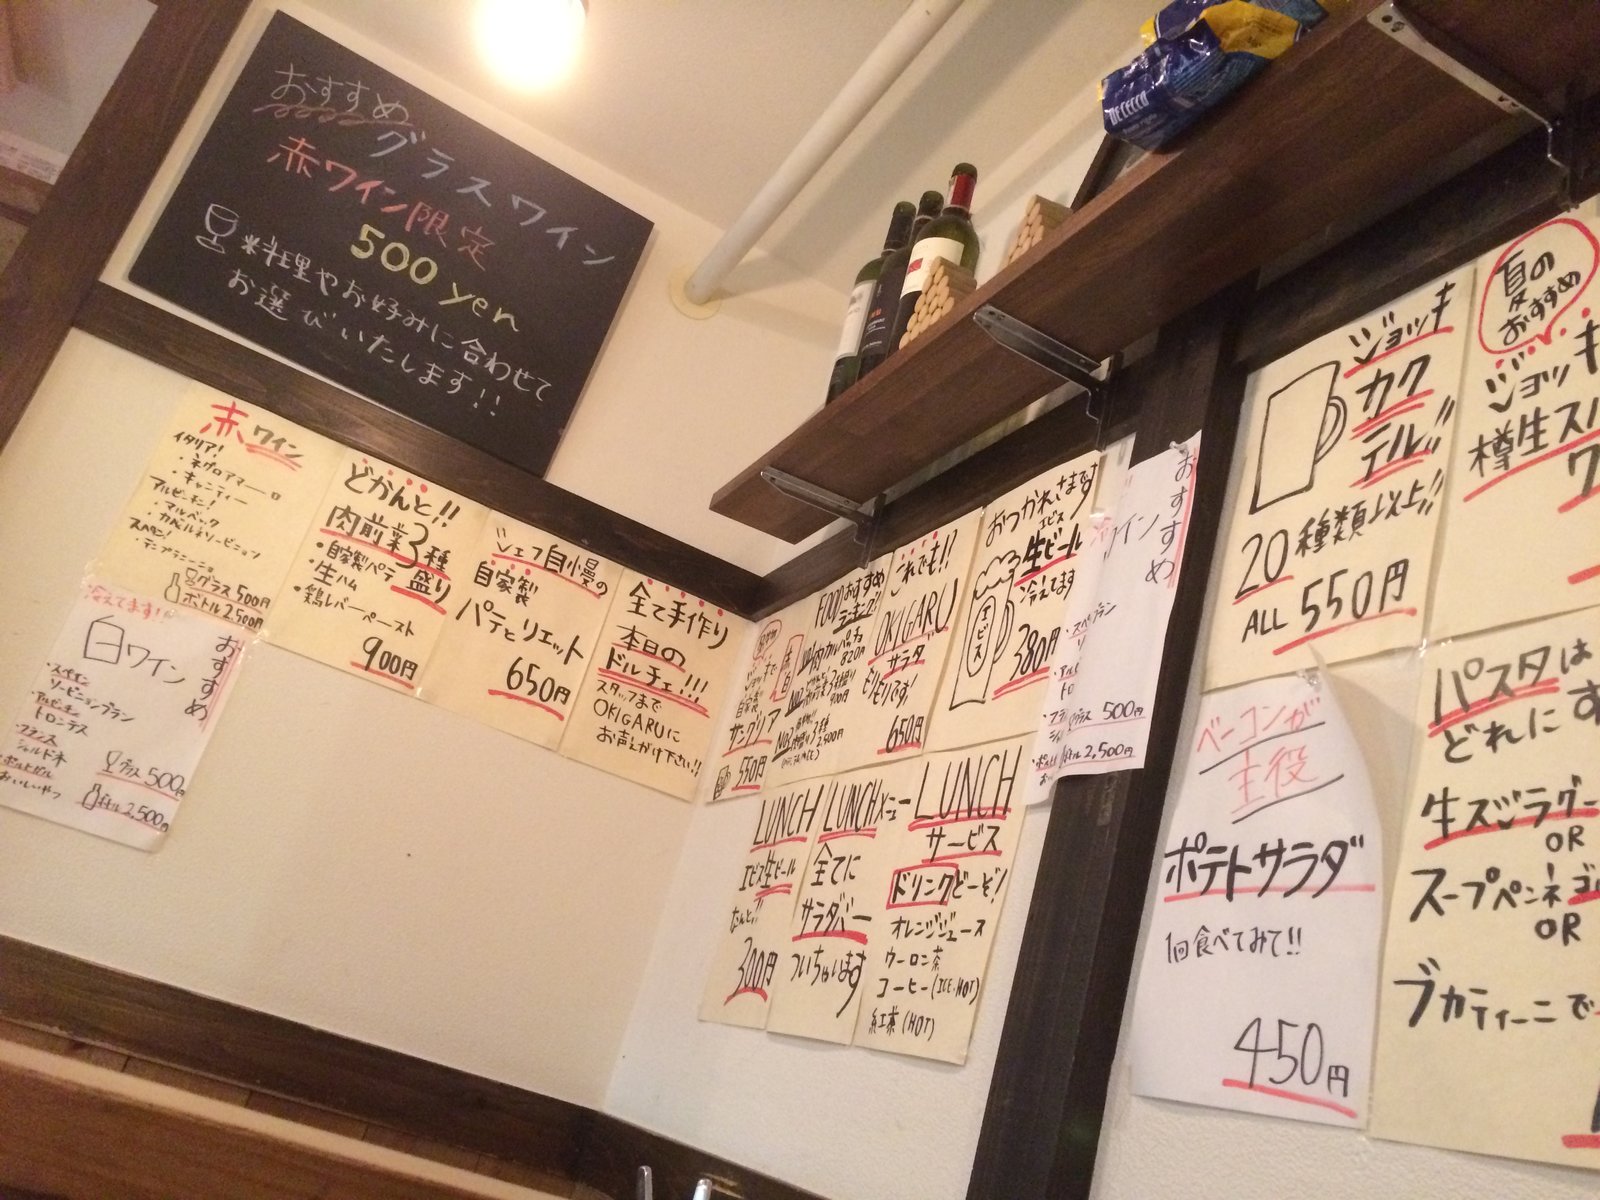 おすすめ
グラスワイン
赤ワイン限定
500 yen
料理やお好みに合わせて
お選びいたします!!
DE CECCO
赤ワイン
イタリア!
・ネグロアマーロ
・キャンティー
アルゼンチン!
・マルベック
・カベルネソービニョン
スペイン!
・テンプラニーニョ
グラス500円
ボトル2,500円
冷えてます!
おすすめ
白ワイン
・スペイン
ソービニョンブラン
・アルゼンチン
トロンテス
・フランス
シャルドネ
・ポルトガル
おいしいやつ
グラス500円
ボトル2,500円
どかんと!!
肉前菜3種
盛り
・自家製パテ
・生ハム
・鶏レバーペースト
900円
シェフ自慢の
自家製
パテとリエット
650円
全て手作り
本日の
ドルチェ!!!
スタッフまで
OKIGARUに
お声がけ下さい!!
ジョッキで
自家製
サングリア
550円
FOODおすすめ
ランキング!!
820円
900円
2,500円
これでも!!
OKIGARU
サラダ
モリモリです!
650円
おつかれさまです
エビス
生ビール
冷えてます
エビス
380円
おすすめ
ワイン
グラス500円
ボトル2,500円
LUNCH
エビス生ビール
なんと!!
300円
LUNCHメニュー
全てに
サラダバー
ついちゃいます
LUNCH
サービス
ドリンクどーぞ!
オレンジジュース
ウーロン茶
コーヒー(ICE・HOT)
紅茶(HOT)
ジョッキ
カク
テル!!
20種類以上!!
ALL 550円
夏の
おすすめ
ジョッキ
樽生スパ
ワ
ベーコンが
主役
ポテトサラダ
1回食べてみて!!
450円
パスタは
どれにす
生スパラグー
OR
スープペンネゴ
OR
ブカティーニで